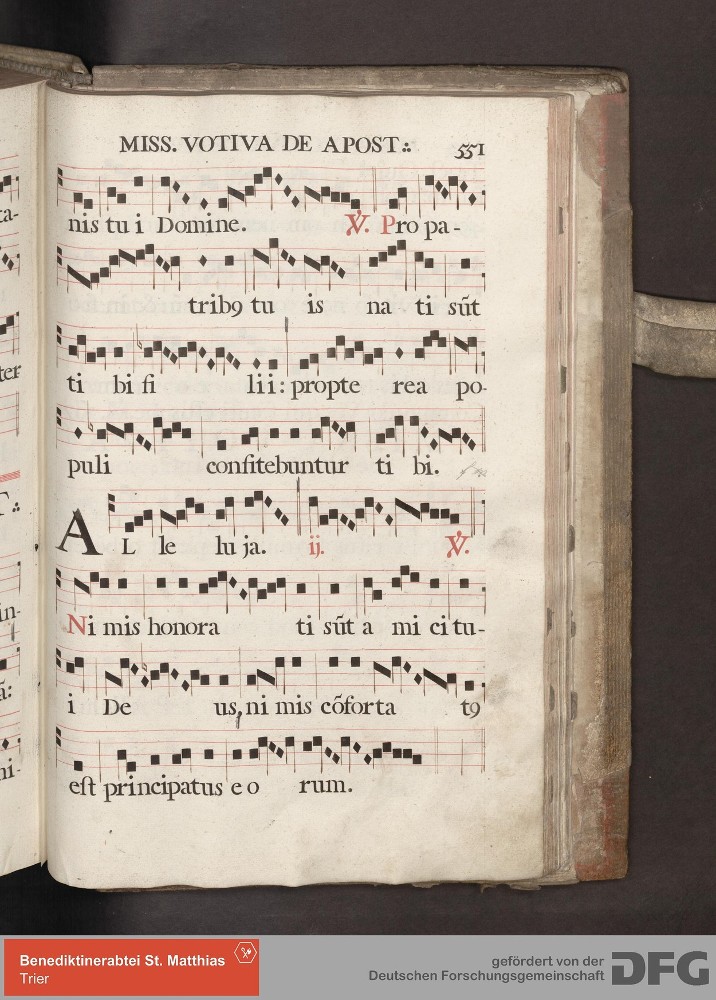 MISS. VOTIVA DE APOST:.
551
nis tu i Domine. ℣. Pro pa-
trib9 tu is na ti sũt
ti bi fi lii: propte rea po-
puli confitebuntur ti bi.
AL le lu ja. ij. ℣.
Ni mis honora ti sũt a mi ci tu-
i De us, ni mis cõforta t9
est principatus e o rum.
ta-
ter
T:.
in-
ã:
ni-
Benediktinerabtei St. Matthias
Trier
gefördert von der
Deutschen Forschungsgemeinschaft
DFG